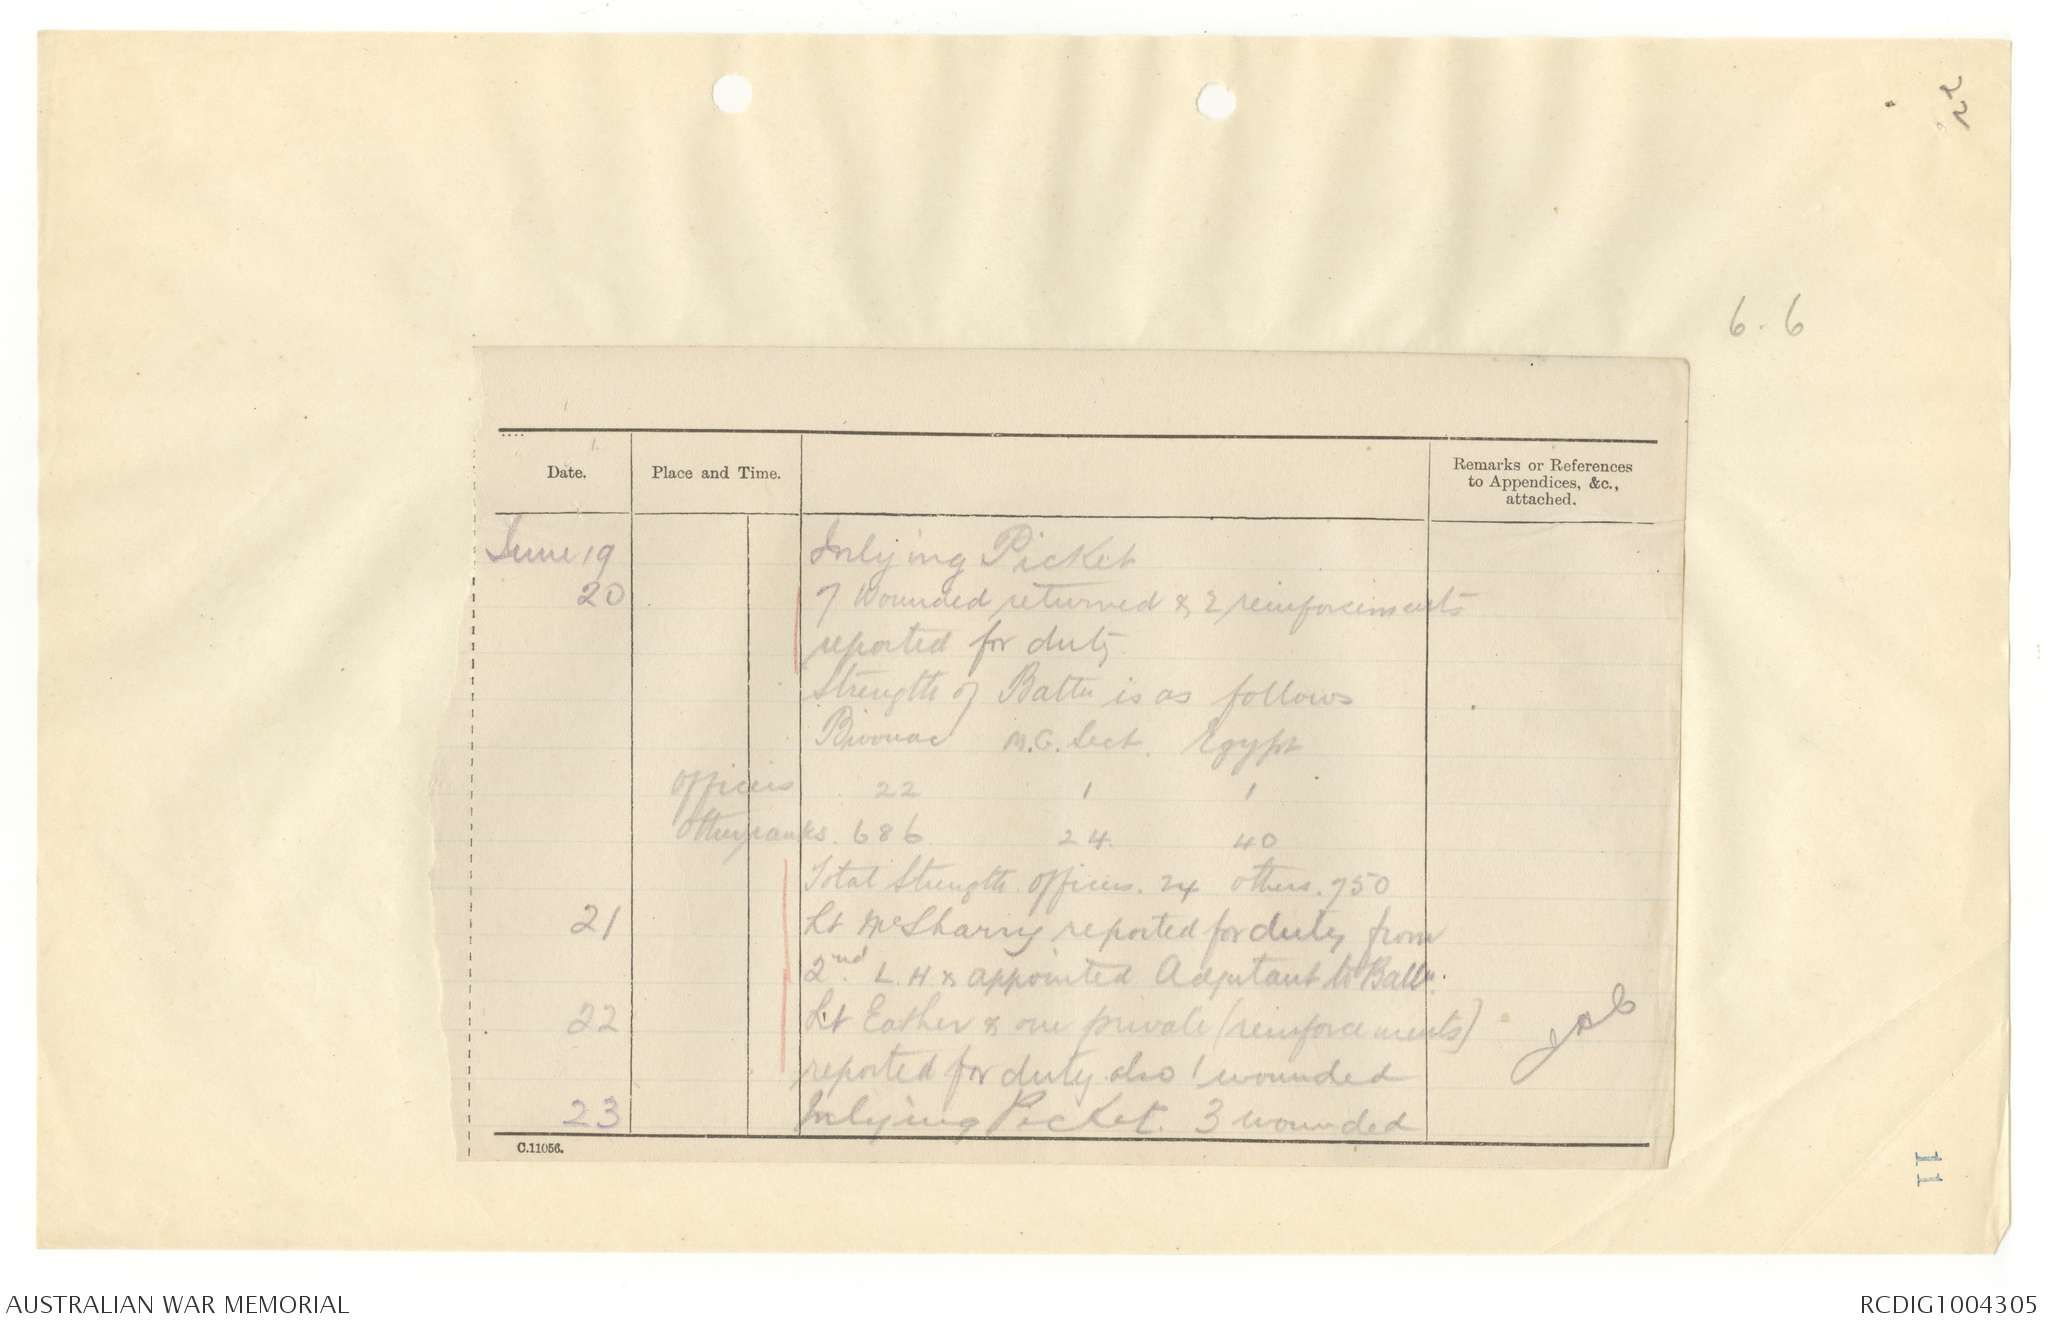 22
6.6
Date.
Place and Time.
Remarks or References
to Appendices, &c.,
attached.
June 19 Inlying Picket
20 7 Wounded returned & 2 reinforcements
reported for duty
Strength of Battn is as follows
Bivouac M.G. Sect. Egypt
Officers 22 1 1
Other ranks. 686 24 40
Total Strength officers. 24 others. 750
21 Lt McSharry reported for duty from
2nd L.H & appointed Adjutant to Battn.
22 Lt Eather & one private (reinforcements)
reported for duty also 1 wounded
23 Inlying Picket. 3 wounded
C.11056.
11
AUSTRALIAN WAR MEMORIAL
RCDIG1004305